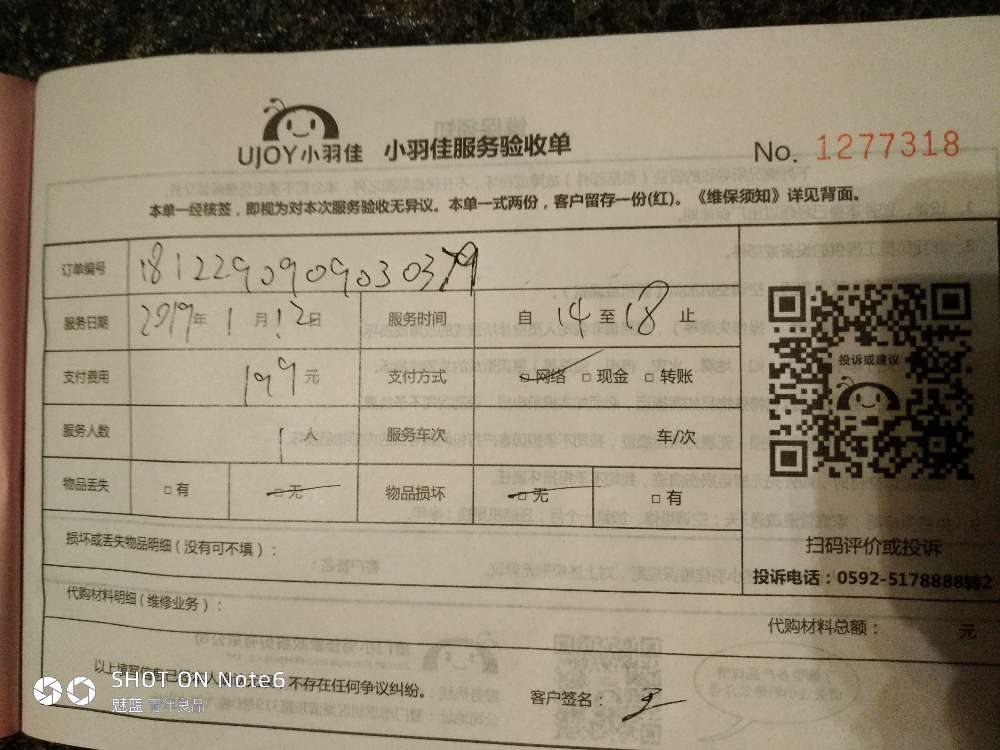 UJOY小羽佳 小羽佳服务验收单
No. 1277318
本单一经核签，即视为对本次服务验收无异议。本单一式两份，客户留存一份(红)。《维保须知》详见背面。
订单编号
服务日期 2019年 1月12日 服务时间 自 14 至 18 止
支付费用 199元 支付方式 □网络 □现金 □转账
服务人数 1人 服务车次 车/次
物品丢失 □有 □无 物品损坏 □无 □有
投诉或建议
扫码评价或投诉
投诉电话：0592-5178888转2
损坏或丢失物品明细（没有可不填）：
代购材料明细（维修业务）：
代购材料总额： 元
不存在任何争议纠纷。
客户签名：
SHOT ON Note6
魅蓝 青年良品